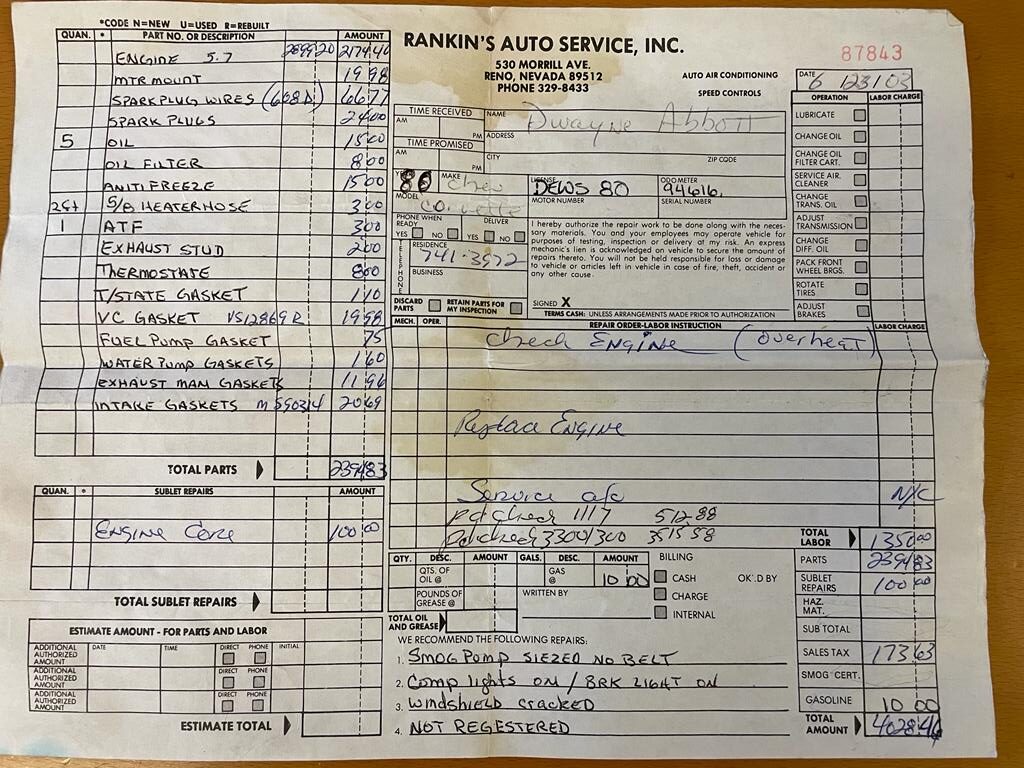 *CODE N=NEW U=USED R=REBUILT
QUAN. * PART NO. OR DESCRIPTION AMOUNT
ENGINE 5.7 2899 20 2174.40
MTR MOUNT 19 98
SPARKPLUG WIRES (668D) 66 77
SPARK PLUGS 24 00
5 OIL 15 00
OIL FILTER 8 00
ANTIFREEZE 15 00
2ft 5/8 HEATERHOSE 3 00
1 ATF 3 00
EXHAUST STUD 2 00
THERMOSTATE 8 00
T/STATE GASKET 1 10
VC GASKET VS12869R 19 98
FUEL PUMP GASKET 75
WATER PUMP GASKETS 1 60
EXHAUST MAN GASKETS 11 96
INTAKE GASKETS MS90314 20 69
TOTAL PARTS 2394 83
QUAN. * SUBLET REPAIRS AMOUNT
ENGINE CORE 100 00
TOTAL SUBLET REPAIRS
ESTIMATE AMOUNT - FOR PARTS AND LABOR
ADDITIONAL AUTHORIZED AMOUNT DATE TIME DIRECT PHONE INITIAL
ADDITIONAL AUTHORIZED AMOUNT DIRECT PHONE
ADDITIONAL AUTHORIZED AMOUNT DIRECT PHONE
ESTIMATE TOTAL
RANKIN'S AUTO SERVICE, INC.
530 MORRILL AVE.
RENO, NEVADA 89512
PHONE 329-8433
AUTO AIR CONDITIONING
SPEED CONTROLS
87843
DATE 6/23/03
TIME RECEIVED
AM PM
NAME Dwayne Abbott
ADDRESS
TIME PROMISED
AM PM
CITY ZIP CODE
YEAR 80 MAKE Chev
LICENSE DEWS 80
ODOMETER 94616.
MODEL Corvette
MOTOR NUMBER SERIAL NUMBER
PHONE WHEN READY YES NO
DELIVER YES NO
TELEPHONE
RESIDENCE 741-3972
BUSINESS
I hereby authorize the repair work to be done along with the neces-
sary materials. You and your employees may operate vehicle for
purposes of testing, inspection or delivery at my risk. An express
mechanic's lien is acknowledged on vehicle to secure the amount of
repairs thereto. You will not be held responsible for loss or damage
to vehicle or articles left in vehicle in case of fire, theft, accident or
any other cause.
DISCARD PARTS RETAIN PARTS FOR MY INSPECTION
SIGNED X
TERMS CASH: UNLESS ARRANGEMENTS MADE PRIOR TO AUTHORIZATION
OPERATION LABOR CHARGE
LUBRICATE
CHANGE OIL
CHANGE OIL FILTER CART.
SERVICE AIR. CLEANER
CHANGE TRANS. OIL
ADJUST TRANSMISSION
CHANGE DIFF. OIL
PACK FRONT WHEEL BRGS.
ROTATE TIRES
ADJUST BRAKES
MECH. OPER. REPAIR ORDER-LABOR INSTRUCTION LABOR CHARGE
Check ENGINE (overheat)
ENGINE
Service a/c N/C
pd check 1117 512.88
Pd check 3300/300 3515 58
TOTAL LABOR 1350 00
QTY. DESC. AMOUNT GALS. DESC. AMOUNT
QTS. OF OIL @ GAS @ 10 00
POUNDS OF GREASE @ WRITTEN BY
TOTAL OIL AND GREASE
BILLING
CASH OK'D BY
CHARGE
INTERNAL
PARTS 2394 83
SUBLET REPAIRS 100 00
HAZ. MAT.
SUB TOTAL
SALES TAX 173 63
SMOG CERT.
GASOLINE 10 00
TOTAL AMOUNT 4028.46
WE RECOMMEND THE FOLLOWING REPAIRS:
1. SMOG PUMP SIEZED NO BELT
2. Comp lights ON / BRK LIGHT ON
3. WINDSHIELD CRACKED
4. NOT REGESTERED